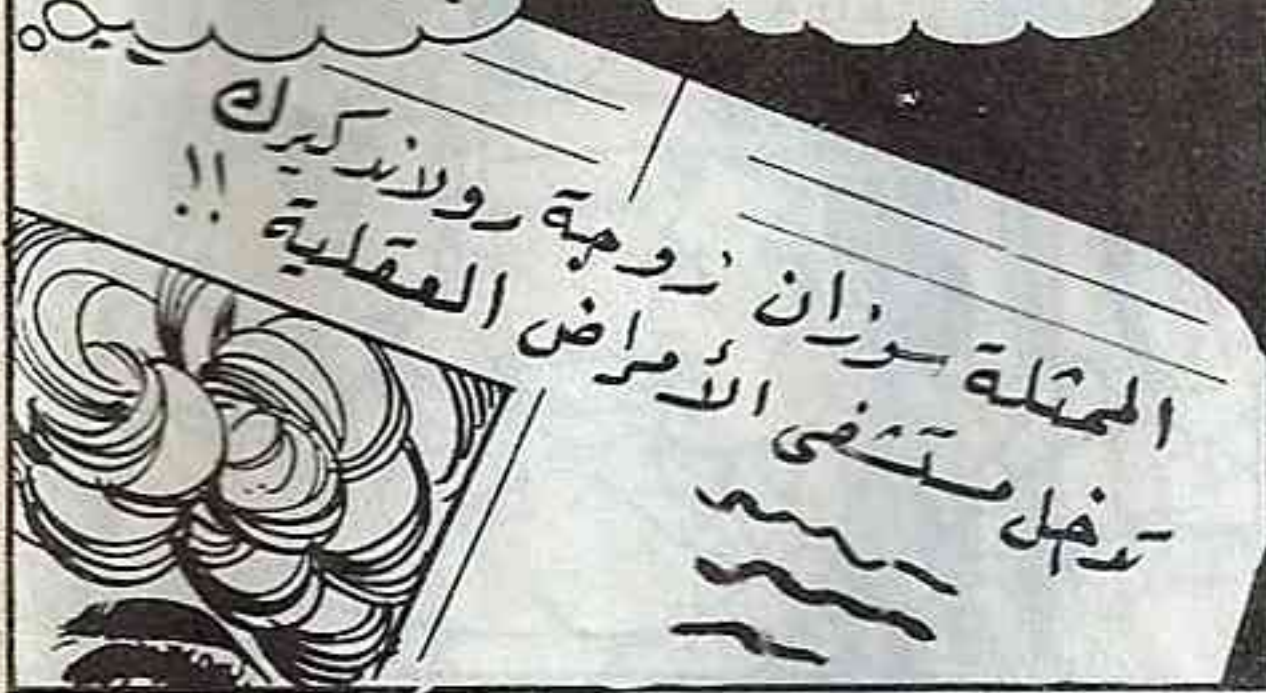 الممثلة سوزان زوجة رولاند كيرك
تدخل مستشفى الأمراض العقلية !!